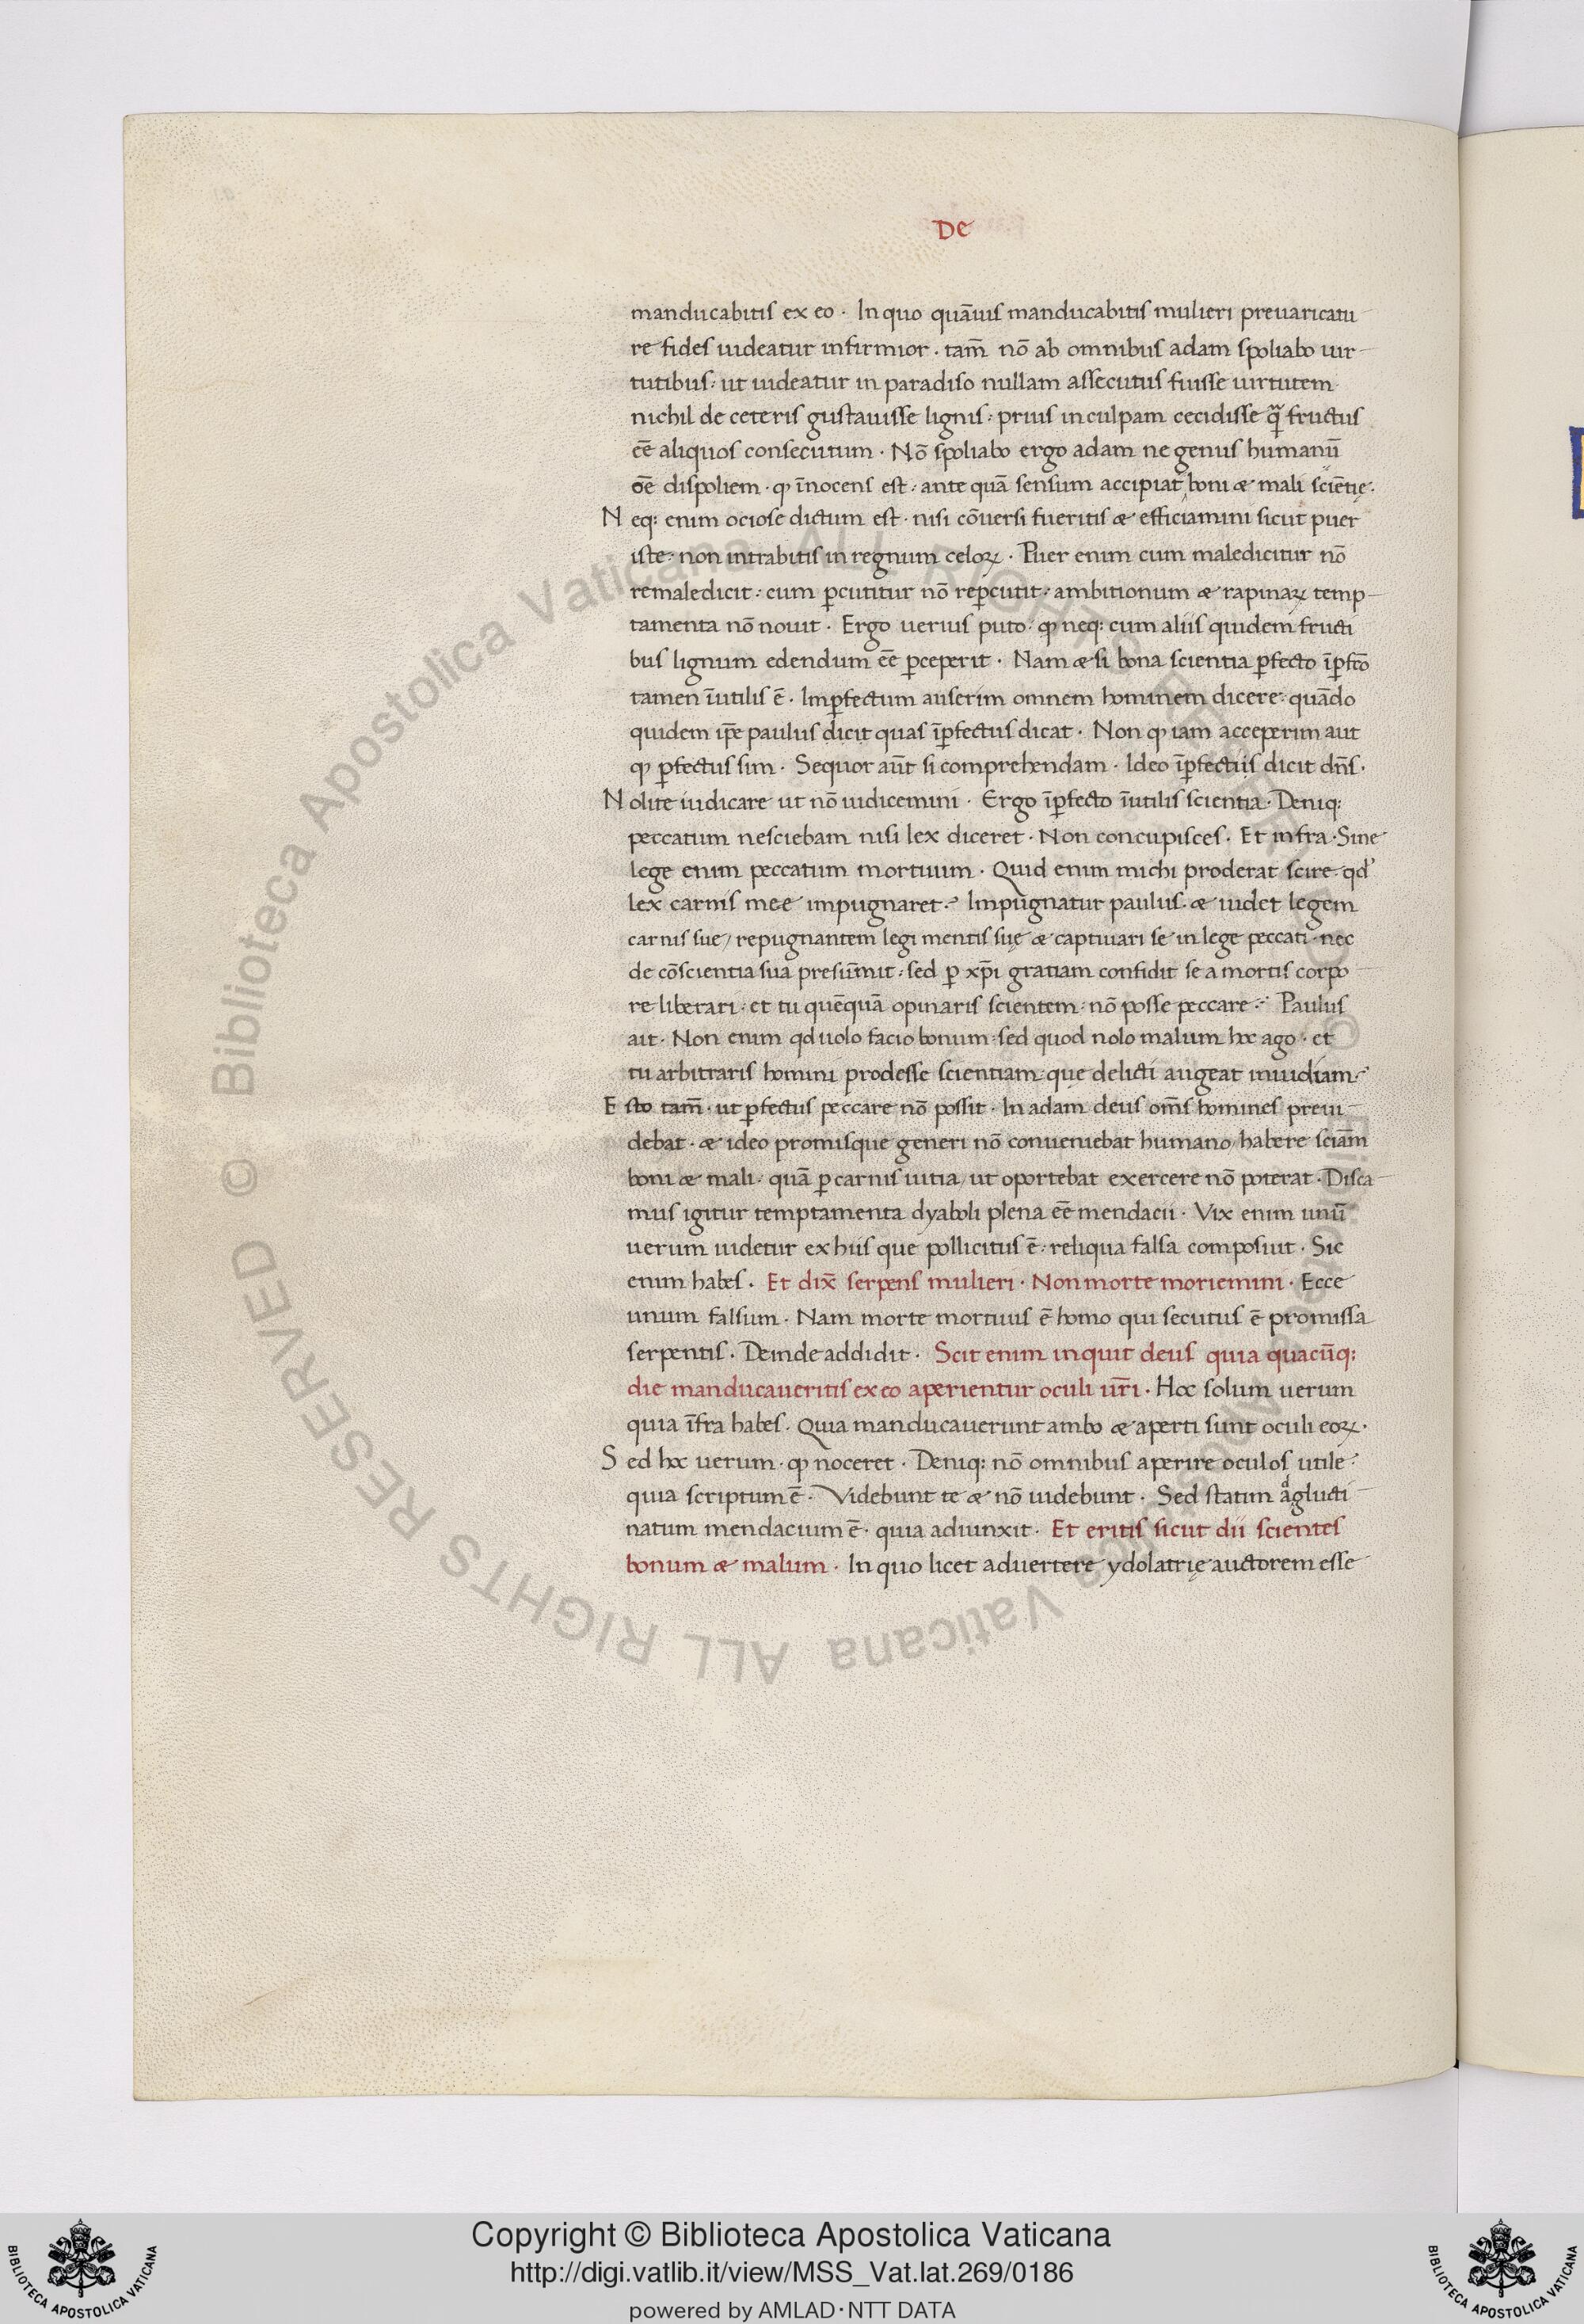 De
manducabitis ex eo · In quo quāuis manducabitis mulieri preuaricatu
re fides uideatur infirmior · tam̄ nō ab omnibus adam spoliabo uir
tutibus : ut uideatur in paradiso nullam assecutus fuisse uirtutem
nichil de ceteris gustauisse lignis : prius in culpam cecidisse q̄ fructus
ēē aliquos consecutum · Nō spoliabo ergo adam ne genus humanū
oē dispoliem · ꝙ īnocens est : ante quā sensum accipiat boni & mali sciētię ·
Neq: enim ociose dictum est · nisi cōuersi fueritis & efficiamini sicut puer
iste : non intrabitis in regnum celoꝝ · Puer enim cum maledicitur nō
remaledicit : cum ꝑcutitur nō reꝑcutit : ambitionum & rapinaꝝ temp
tamenta nō nouit · Ergo uerius puto · ꝙ neq: cum aliis quidem fructi
bus lignum edendum ēē ꝑceperit · Nam & si bona scientia ꝑfecto īꝑfco
tamen īutilis ē · Imꝑfectum auserim omnem hominem dicere : quādo
quidem ip̄e paulus dicit quas īꝑfectus dicat · Non ꝙ iam acceperim aut
ꝙ ꝑfectus sim · Sequor aūt si comprehendam · Ideo īꝑfectus dicit dn̄s ·
Nolite iudicare ut nō iudicemini · Ergo īꝑfecto īutilis scientia · Deniq:
peccatum nesciebam nisi lex diceret · Non concupisces · Et infra · Sine
lege enim peccatum mortuum · Quid enim michi proderat scire qđ
lex carnis mee impugnaret · Impugnatur paulus · & uidet legem
carnis sue / repugnantem legi mentis suę & captiuari se in lege peccati · nec
de cōscientia sua presūmit : sed ꝑ xp̄i gratiam confidit se a mortis corpo
re liberari : et tu quēquā opinaris scientem nō posse peccare · Paulus
ait · Non enim qd uolo facio bonum : sed quod nolo malum hoc ago · et
tu arbitraris homini prodesse scientiam que delicti augeat inuidiam
Esto tam̄ · ut ꝑfectus peccare nō possit · In adam deus om̄s homines preui
debat · & ideo promisque generi nō conueniebat humano / habere sciām
boni & mali · quā ꝑ carnis uitia / ut oportebat exercere nō poterat · Disca
mus igitur temptamenta dyaboli plena ēē mendacii · Vix enim unū
uerum uidetur ex hiis que pollicitus ē : reliqua falsa composuit · Sic
enim habes · Et dix̄ serpens mulieri · Non morte moriemini · Ecce
unum falsum · Nam morte mortuus ē homo qui secutus ē promissa
serpentis · Deinde addidit · Scit enim inquit deus quia quacūq:
die manducaueritis ex eo aperientur oculi ur̄i · Hoc solum uerum
quia īfra habes · Quia manducauerunt ambo & aperti sunt oculi eoꝝ ·
Sed hoc uerum · ꝙ noceret · Deniq: nō omnibus aperire oculos utile :
quia scriptum ē · Videbunt te & nō uidebunt · Sed statim adgluti
natum mendacium ē · quia adiunxit · Et eritis sicut dii scientes
bonum & malum · In quo licet aduertere ydolatrię auctorem esse
© Biblioteca Apostolica Vaticana ALL RIGHTS RESERVED
© Biblioteca Apostolica Vaticana ALL RIGHTS RESERVED
Copyright © Biblioteca Apostolica Vaticana
http://digi.vatlib.it/view/MSS_Vat.lat.269/0186
powered by AMLAD·NTT DATA
BIBLIOTECA APOSTOLICA VATICANA
BIBLIOTECA APOSTOLICA VATICANA